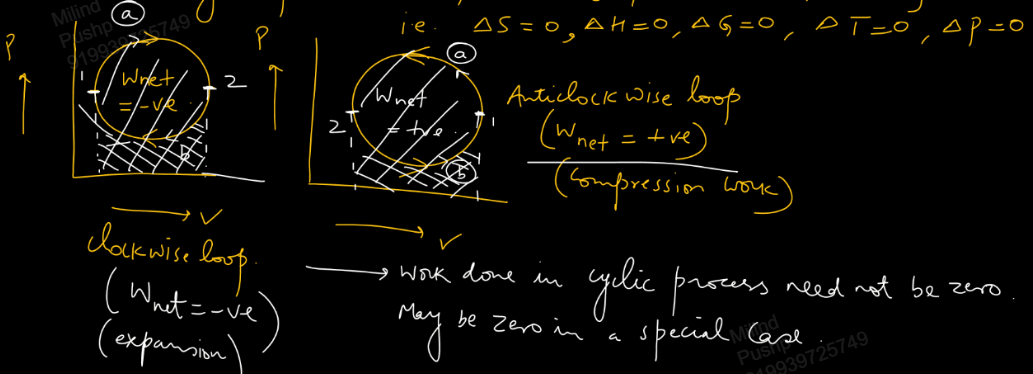 i.e. ΔS = 0, ΔH = 0, ΔG = 0, ΔT = 0, ΔP = 0
Milind
Pushp
919939725749
a
P
1
2
Wnet
= -ve
b
V
clockwise loop.
(Wnet = -ve)
(expansion)
P
a
2
1
Wnet
= +ve
b
V
Anticlockwise loop
(Wnet = +ve)
(Compression work)
→ Work done in cyclic process need not be zero.
May be zero in a special case.
Milind
Pushp
919939725749